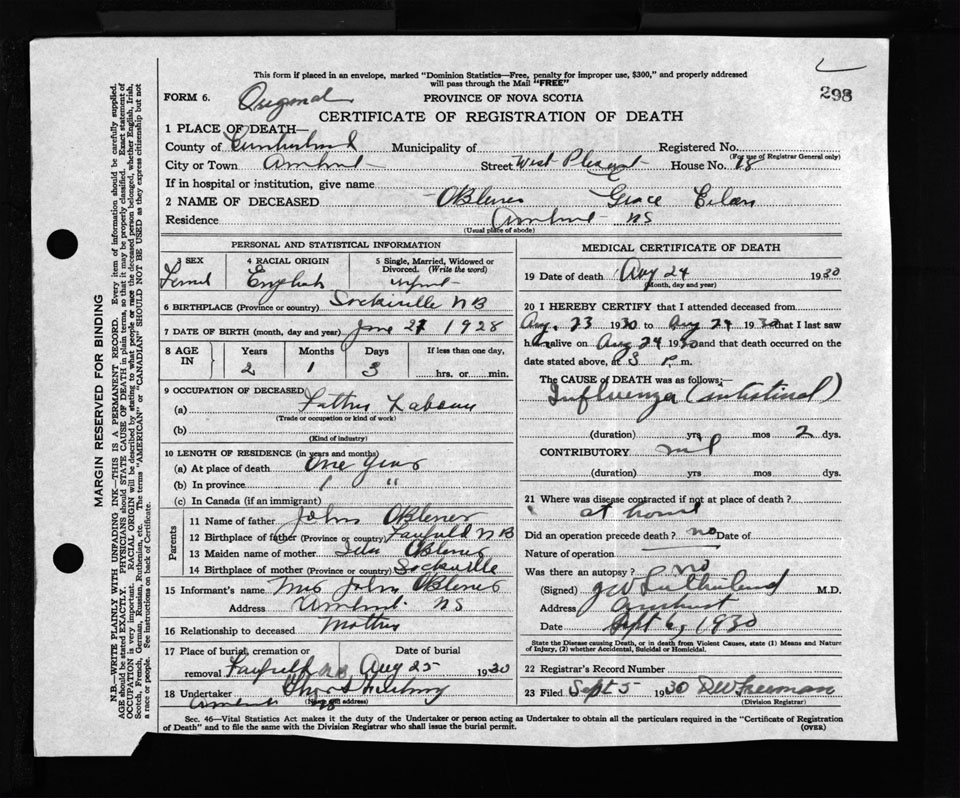 This form if placed in an envelope, marked "Dominion Statistics—Free, penalty for improper use, $300," and properly addressed
will pass through the Mail "FREE"
298
FORM 6. Original
PROVINCE OF NOVA SCOTIA
CERTIFICATE OF REGISTRATION OF DEATH
1 PLACE OF DEATH—
County of Cumberland Municipality of Registered No.
(For use of Registrar General only)
City or Town Amherst Street West Pleasant House No. 18
If in hospital or institution, give name
2 NAME OF DECEASED OBlenes Grace Eileen
Residence Amherst NS
(Usual place of abode)
MARGIN RESERVED FOR BINDING
N.B.—WRITE PLAINLY WITH UNFADING INK—THIS IS A PERMANENT RECORD. Every item of information should be carefully supplied.
AGE should be stated EXACTLY. PHYSICIANS should STATE CAUSE OF DEATH in plain terms, so that it may be properly classified. Exact statement of
OCCUPATION is very important. RACIAL ORIGIN will be described by stating to what people or race the deceased person belonged, whether English, Irish,
Scotch, French, German, Russian, Ruthenian, etc. The terms "AMERICAN" or "CANADIAN" SHOULD NOT BE USED as they express citizenship but not
a race or people. See instructions on back of Certificate.
PERSONAL AND STATISTICAL INFORMATION
3 SEX
Female
4 RACIAL ORIGIN
English
5 Single, Married, Widowed or
Divorced. (Write the word)
Infant
6 BIRTHPLACE (Province or country) Sackville NB
7 DATE OF BIRTH (month, day and year) June 21 1928
8 AGE IN
Years Months Days If less than one day,
2 1 3 hrs. or min.
9 OCCUPATION OF DECEASED
(a) Fathers Labour
(Trade or occupation or kind of work)
(b)
(Kind of industry)
10 LENGTH OF RESIDENCE (in years and months)
(a) At place of death One Year
(b) In province 1 "
(c) In Canada (if an immigrant)
Parents
11 Name of father John OBlenes
12 Birthplace of father (Province or country) Fairfield NB
13 Maiden name of mother Ida OBlenes
14 Birthplace of mother (Province or country) Sackville
15 Informant's name Mrs John OBlenes
Address Amherst NS
16 Relationship to deceased Mother
17 Place of burial, cremation or Date of burial
removal Fairfield NB Aug 25 1930
18 Undertaker
(Name and address)
Amherst NS
MEDICAL CERTIFICATE OF DEATH
19 Date of death Aug 24 1930
(Month, day and year)
20 I HEREBY CERTIFY that I attended deceased from
Aug. 23 1930 to Aug 24 1930 that I last saw
her alive on Aug 24 1930 and that death occurred on the
date stated above, at 3 P. m.
The CAUSE OF DEATH was as follows:—
Influenza (intestinal)
(duration) yrs mos 2 dys.
CONTRIBUTORY nil
(duration) yrs mos dys.
21 Where was disease contracted if not at place of death?
at home
Did an operation precede death? no Date of
Nature of operation
Was there an autopsy? no
(Signed) J W Sutherland M.D.
Address Amherst
Date Sept 6, 1930
State the Disease causing Death, or in death from Violent Causes, state (1) Means and Nature
of Injury, (2) whether Accidental, Suicidal or Homicidal.
22 Registrar's Record Number
23 Filed Sept 5 1930 DW Freeman
(Division Registrar)
Sec. 46—Vital Statistics Act makes it the duty of the Undertaker or person acting as Undertaker to obtain all the particulars required in the "Certificate of Registration
of Death" and to file the same with the Division Registrar who shall issue the burial permit. (OVER)